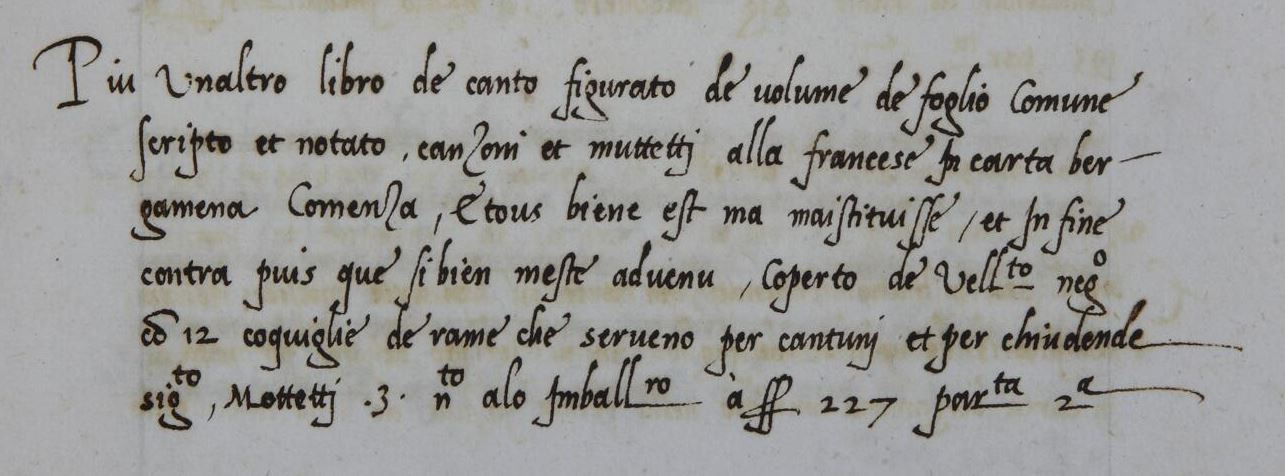 Piu Unaltro libro de canto figurato de volume de foglio Comune
scripto et notato, canzoni et muttettj alla francese In carta ber-
gamena Comenza, Etous biene est ma maistituisse / et In fine
contra puis que si bien meste advenu, Coperto de Vell.to neg.o
cō 12 coquiglie de rame che serveno per cantunj et per chiudende
sig.to, Mottettj .3. n.to alo Imball.ro à ff 227 par.ta 2.a